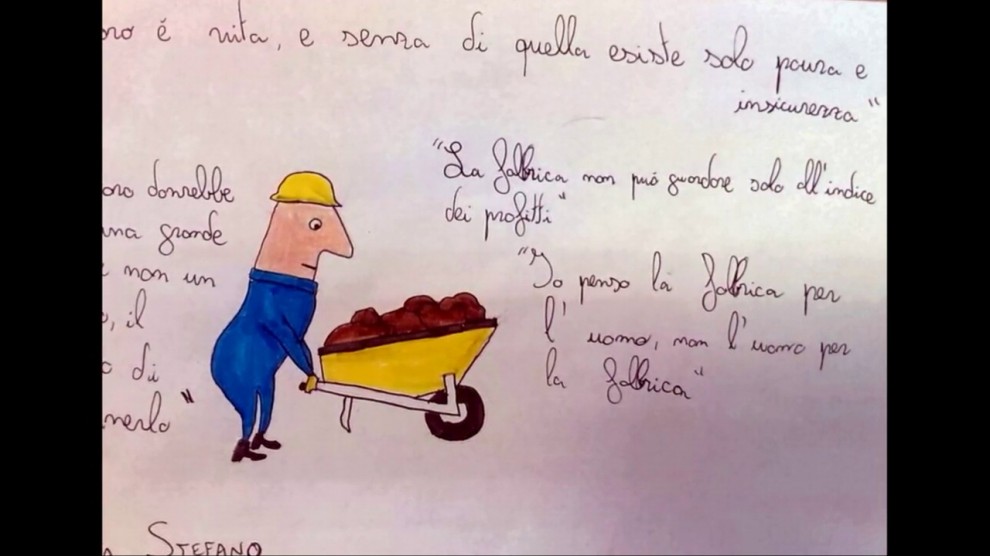 oro é vita, e senza di quella esiste solo paura e
insicurezza"
"La fabbrica non può guardare solo all'indice
dei profitti"
oro dovrebbe
una grande
e non un
o, il
o di
nerlo"
"Io penso la fabbrica per
l'uomo, non l'uomo per
la fabbrica"
a STEFANO